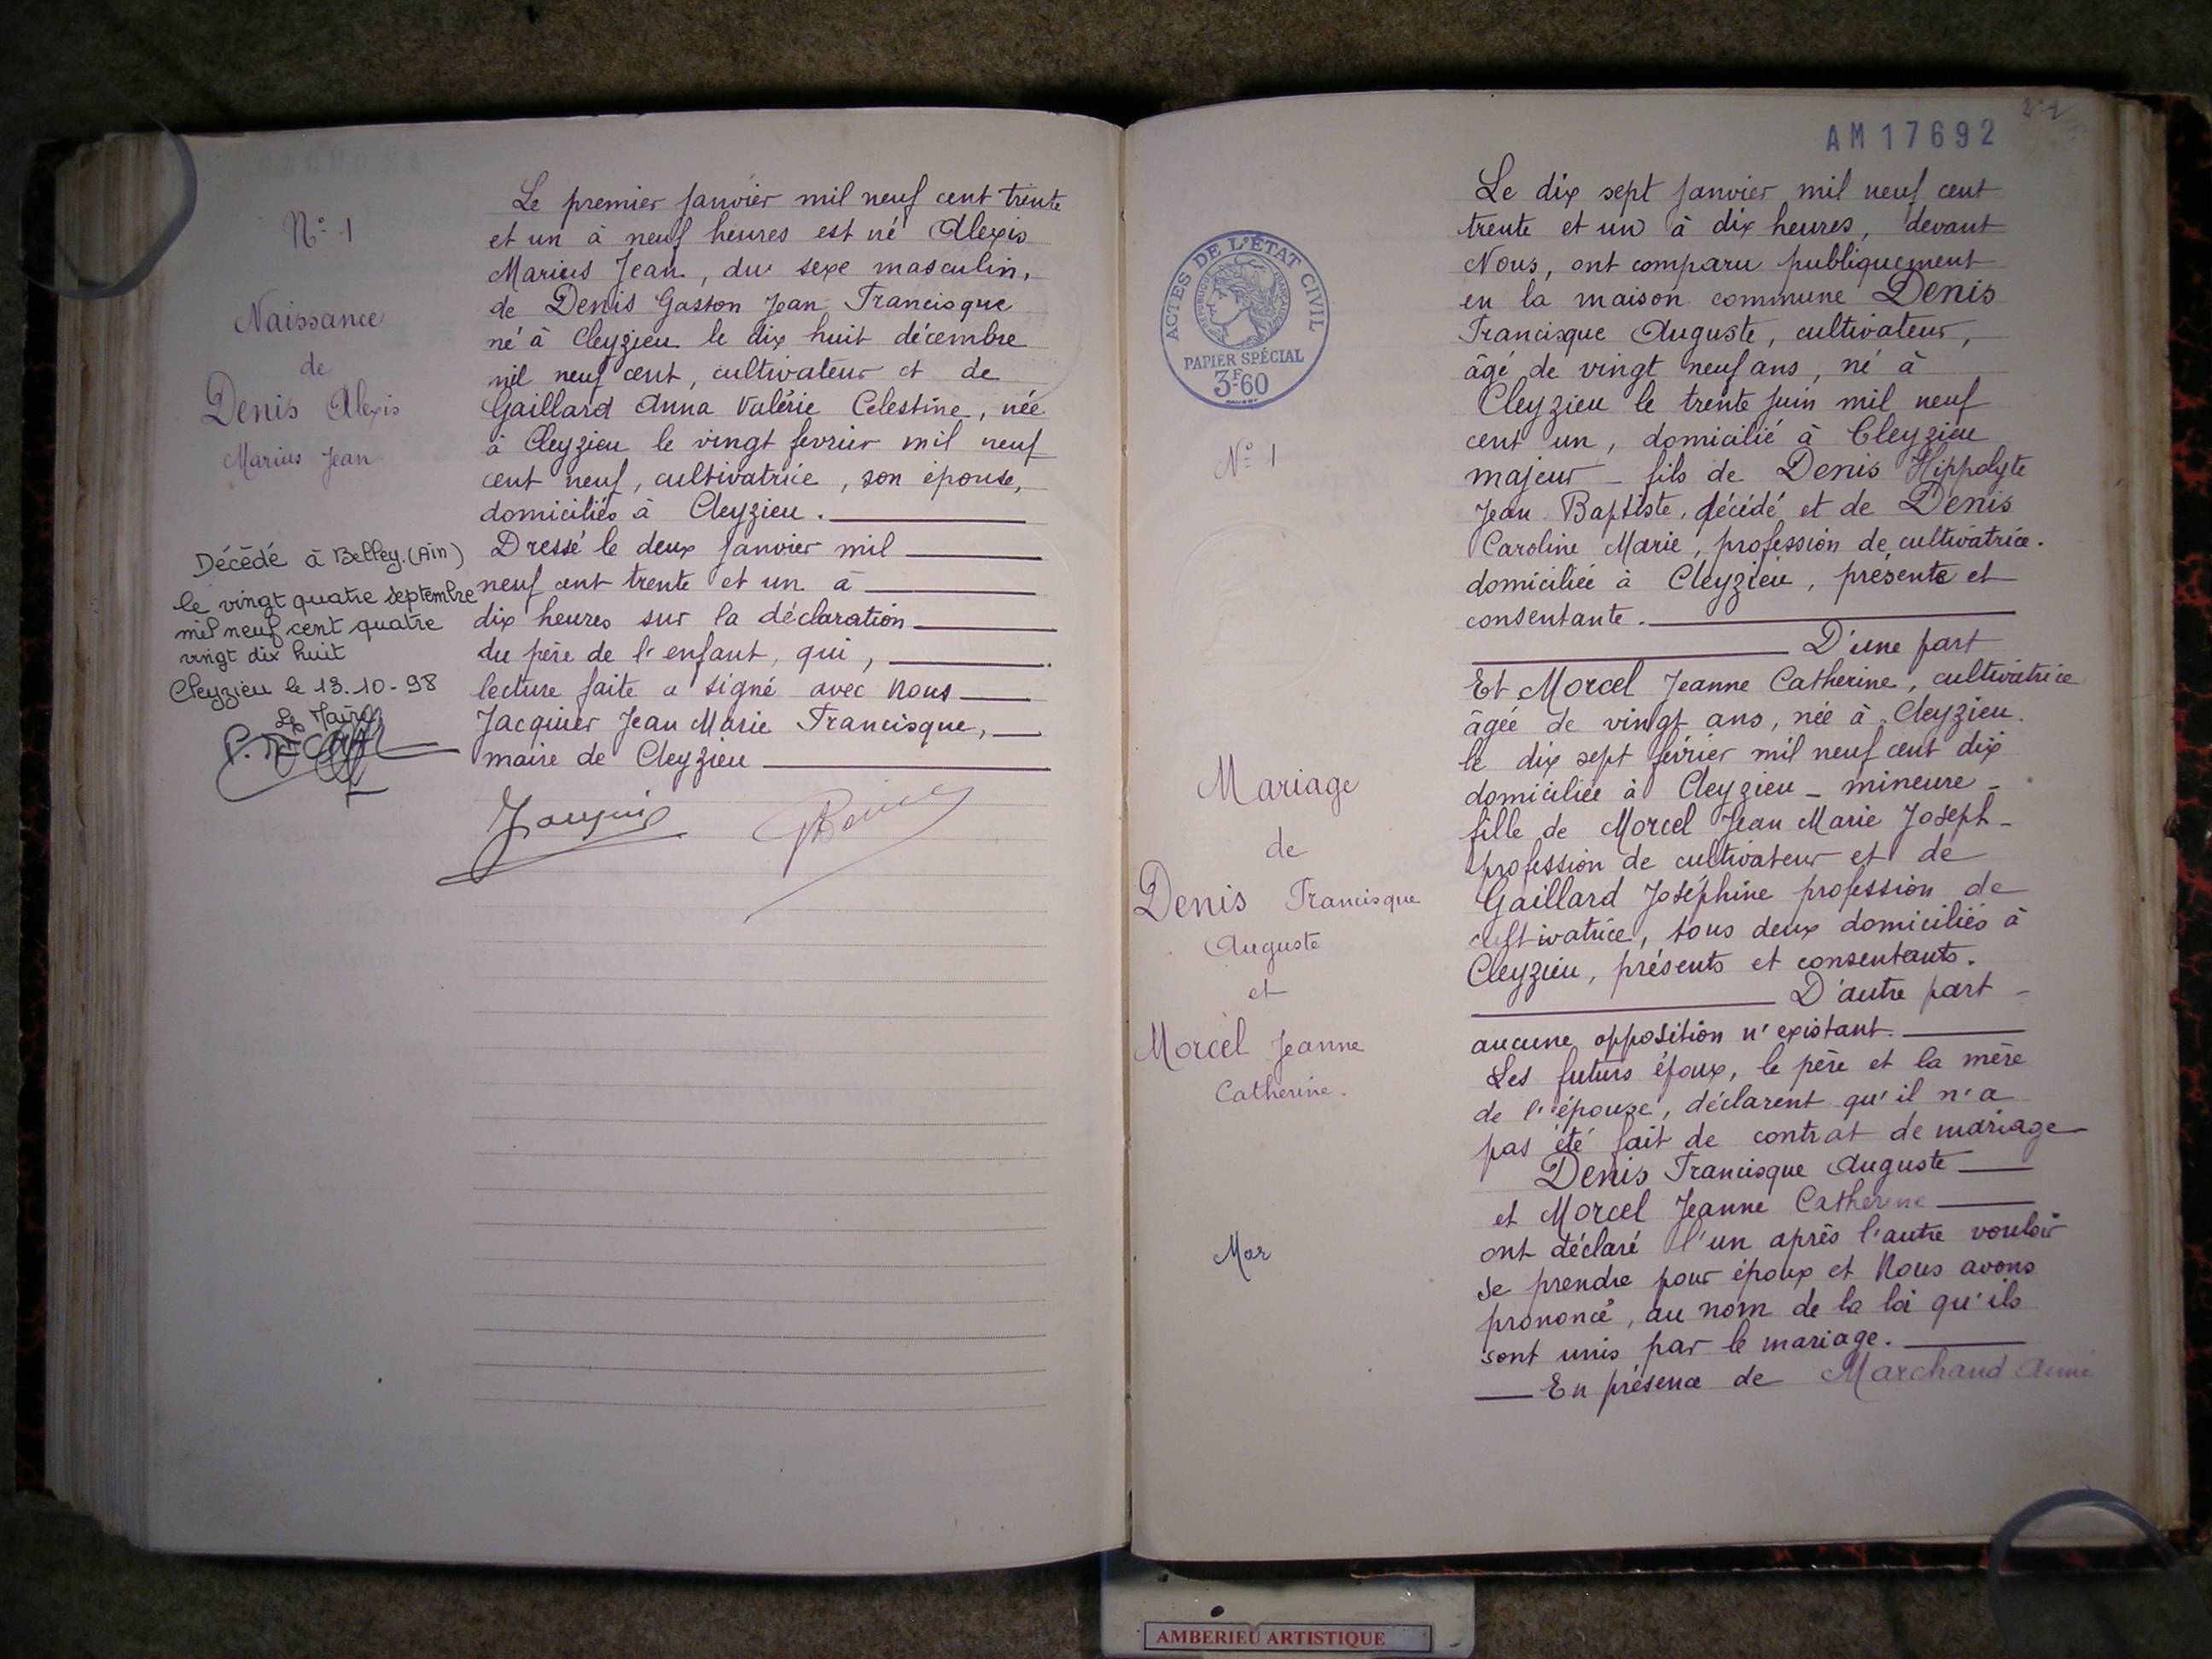 N° 1
Naissance
de
Denis Alexis
Marius Jean
Décédé à Belley.(Ain)
le vingt quatre septembre
mil neuf cent quatre
vingt dix huit
Cleyzieu le 13.10-98
Le Maire
Le premier Janvier mil neuf cent trente
et un à neuf heures est né Alexis
Marius Jean, du sexe masculin,
de Denis Gaston Jean Francisque
né à Cleyzieu le dix huit décembre
mil neuf cent, cultivateur et de
Gaillard Anna Valérie Celestine, née
à Cleyzieu le vingt fevrier mil neuf
cent neuf, cultivatrice, son épouse,
domiciliés à Cleyzieu.
Dressé le deux Janvier mil
neuf cent trente et un à
dix heures sur la déclaration
du père de l'enfant, qui,
lecture faite a signé avec Nous
Jacquier Jean Marie Francisque,
maire de Cleyzieu
AM17692
ACTES DE L'ÉTAT CIVIL
RÉPUBLIQUE FRANÇAISE
PAPIER SPÉCIAL
3F60
N° 1
Mariage
de
Denis Francisque
Auguste
et
Morcel Jeanne
Catherine.
Mar
Le dix sept Janvier mil neuf cent
trente et un à dix heures, devant
Nous, ont comparu publiquement
en la maison commune Denis
Francisque Auguste, cultivateur,
âgé de vingt neuf ans, né à
Cleyzieu le trente Juin mil neuf
cent un, domicilié à Cleyzieu
majeur - fils de Denis Hippolyte
Jean Baptiste, décédé et de Denis
Caroline Marie, profession de cultivatrice.
domiciliée à Cleyzieu, présente et
consentante.
D'une part
Et Morcel Jeanne Catherine, cultivatrice
âgée de vingt ans, née à Cleyzieu.
le dix sept février mil neuf cent dix
domiciliée à Cleyzieu - mineure -
fille de Morcel Jean Marie Joseph -
profession de cultivateur et de
Gaillard Joséphine profession de
cultivatrice, tous deux domiciliés à
Cleyzieu, présents et consentants.
D'autre part -
aucune opposition n'existant.
Les futurs époux, le père et la mère
de l'épouse, déclarent qu'il n'a
pas été fait de contrat de mariage
Denis Francisque Auguste
et Morcel Jeanne Catherine
ont déclaré l'un après l'autre vouloir
se prendre pour époux et Nous avons
prononcé, au nom de la loi qu'ils
sont unis par le mariage.
En présence de Marchand
AMBERIEU ARTISTIQUE